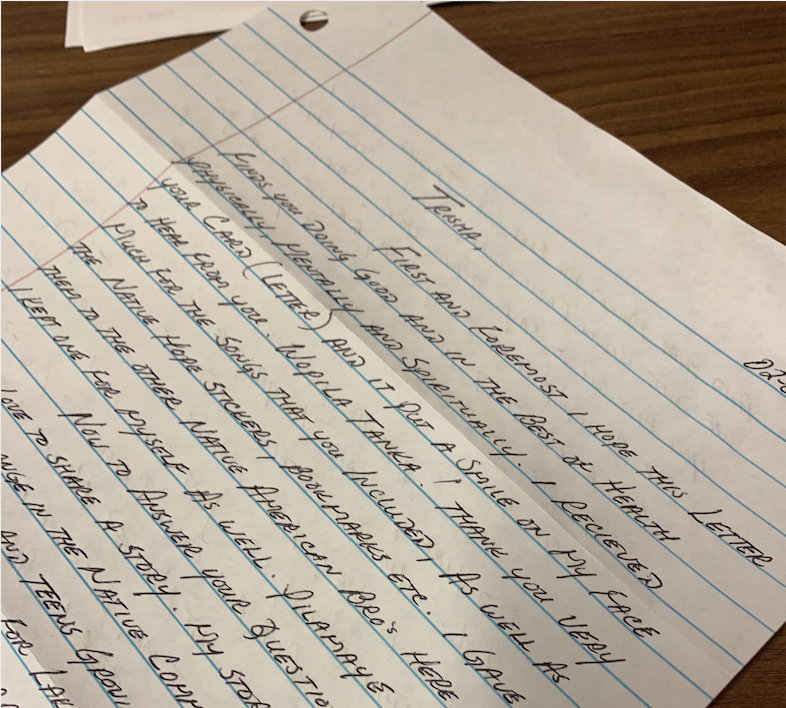 02-0
TRISHA,
FIRST AND FOREMOST I HOPE THIS LETTER
FINDS YOU DOING GOOD AND IN THE BEST OF HEALTH
PHYSICALLY, MENTALLY AND SPIRITUALLY. I RECIEVED
YOUR CARD (LETTER) AND IT PUT A SMILE ON MY FACE
TO HEAR FROM YOU. WOPILA TANKA! THANK YOU VERY
MUCH FOR THE SONGS THAT YOU INCLUDED, AS WELL AS
THE NATIVE HOPE STICKERS, BOOKMARKS ETC. I GAVE
THEM TO THE OTHER NATIVE AMERICAN BRO'S HERE
I KEPT ONE FOR MYSELF AS WELL. PILAMAYE
NOW TO ANSWER YOUR QUESTIO
LOVE TO SHARE A STORY. MY STO
ANGE IN THE NATIVE COMM
AND TEENS GROW
FOR LAK